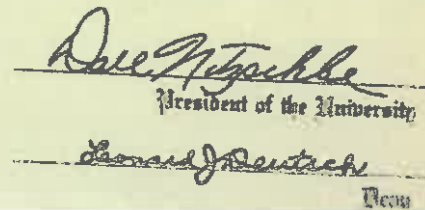 Dale F. Nitzschke
President of the University
Leonard J. Deutsch
Dean